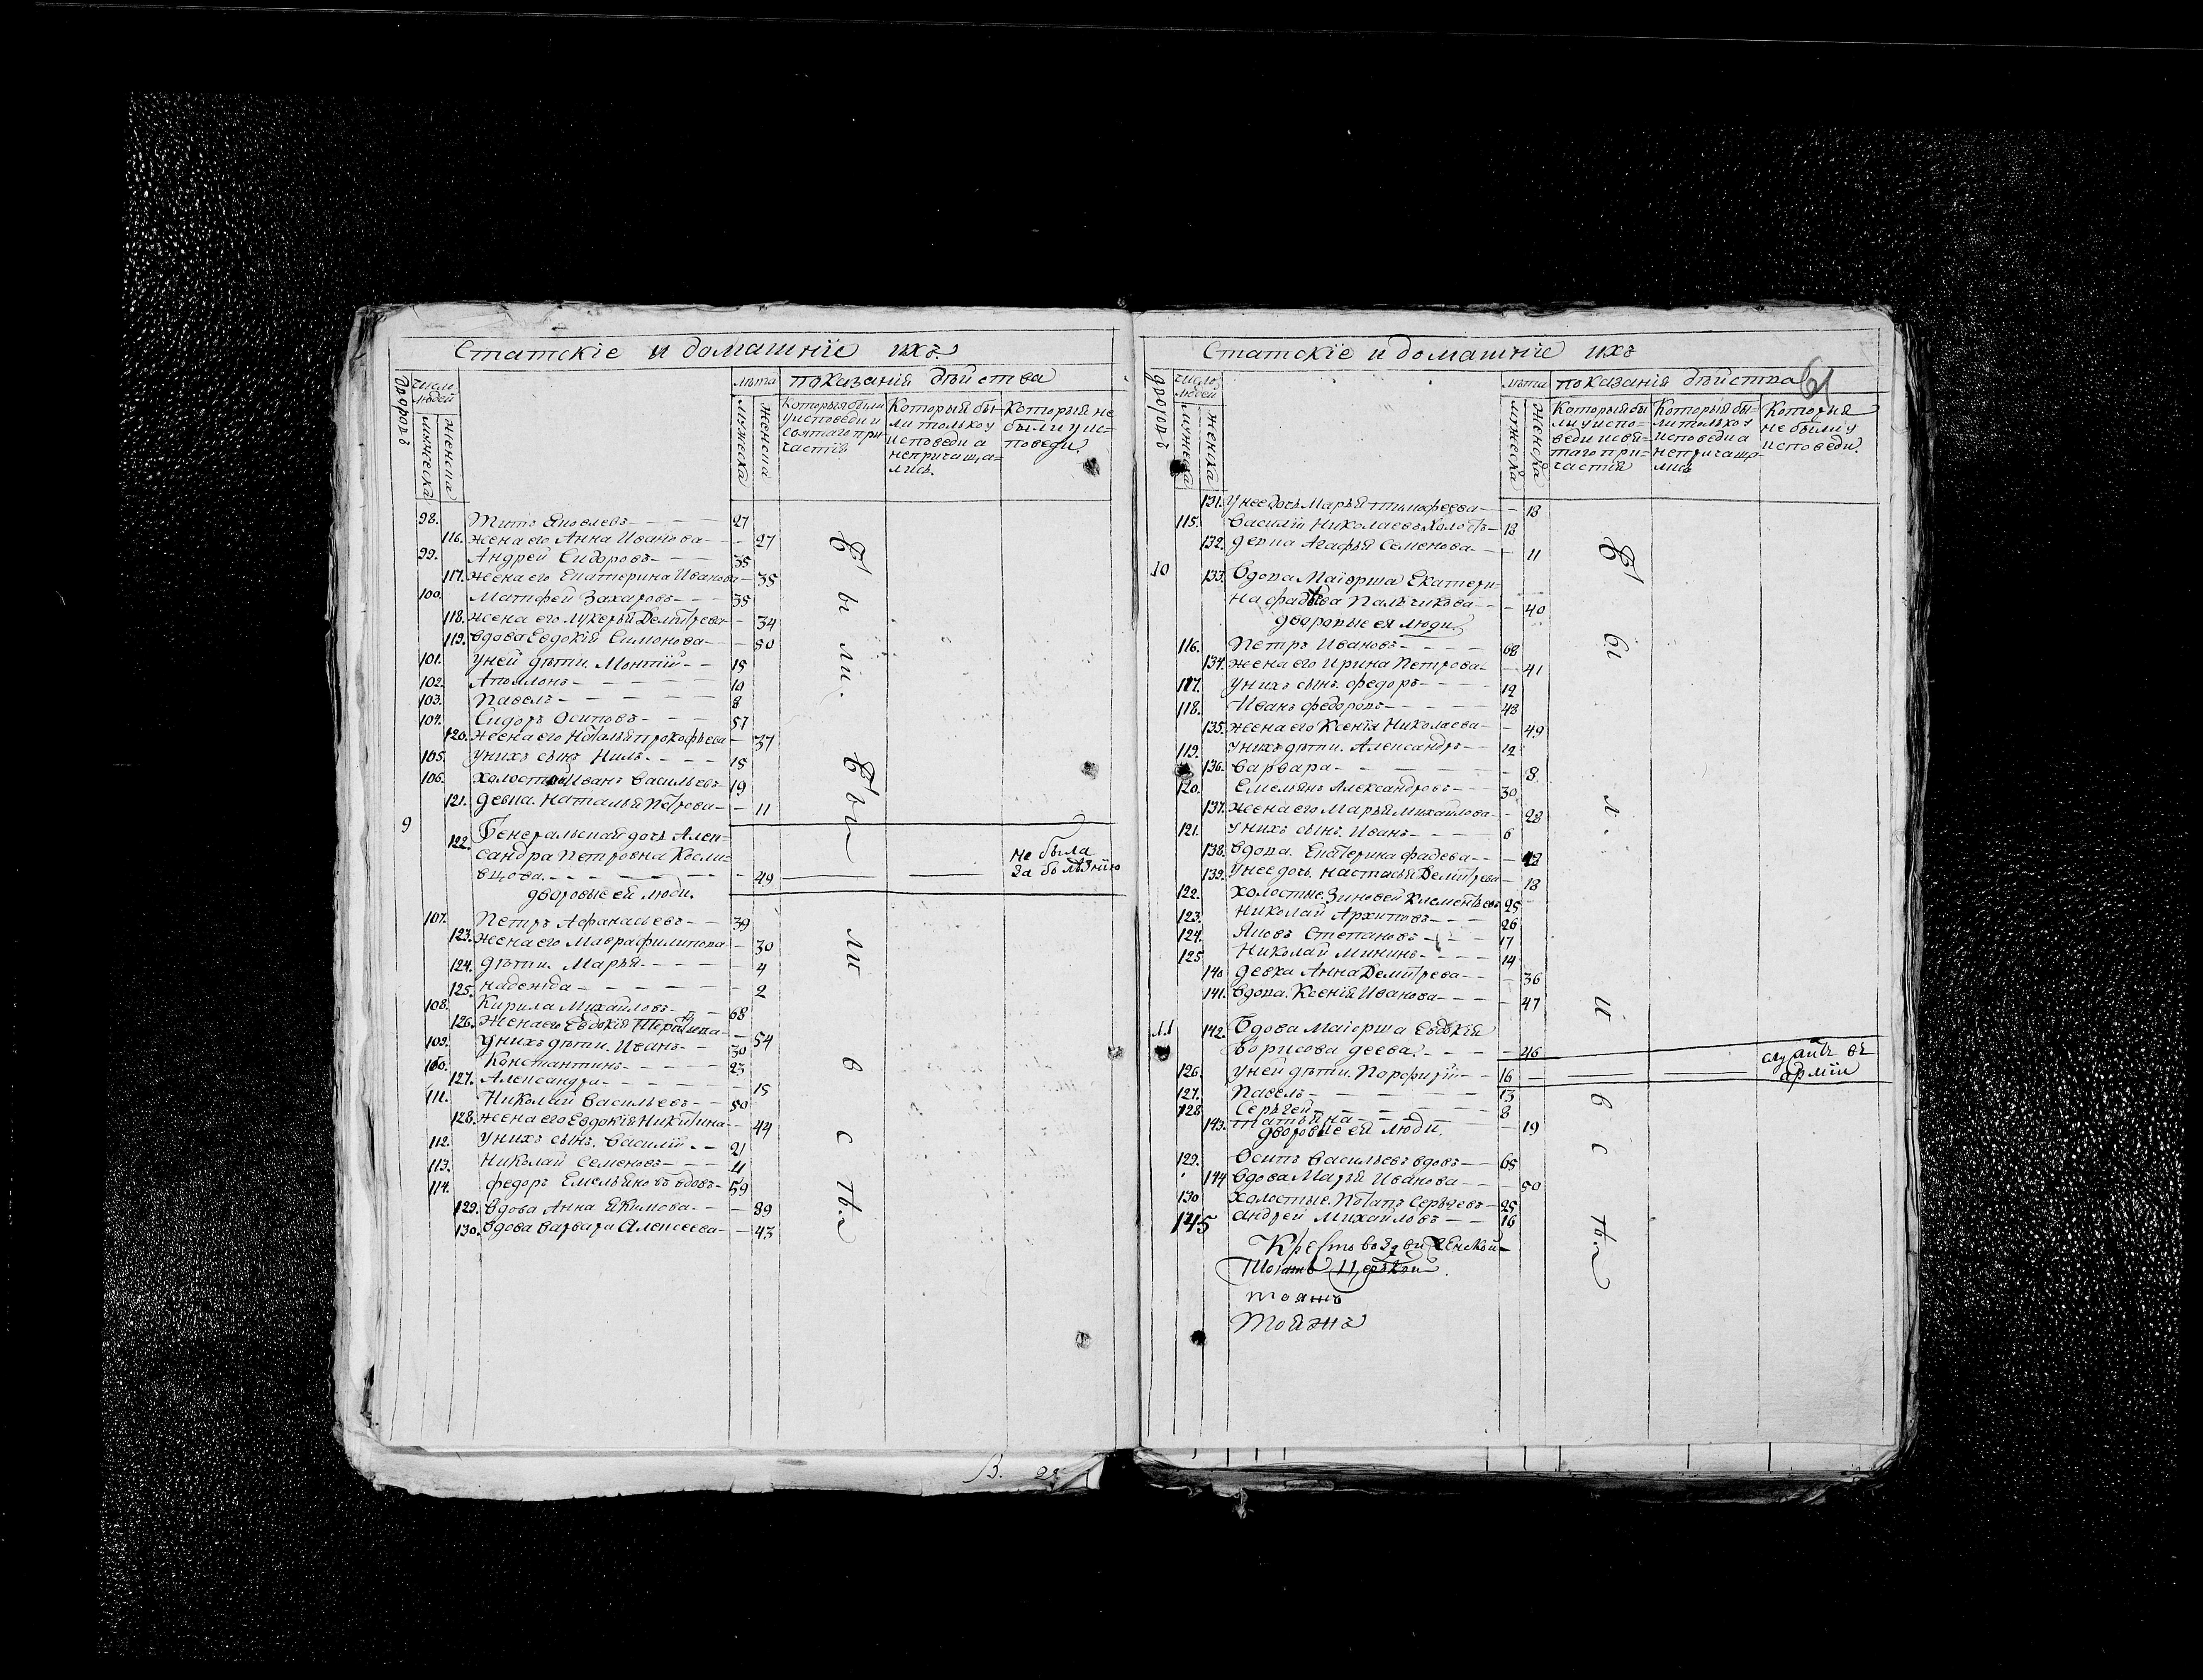 Статскїе и домашнїе ихъ
дворовъ
число людей
мужеска
женска
лѣта
мужеска
женска
показанїя дѣйства
Которыя были
у исповеди и
святаго при-
частїя
Которыя бы-
ли только у
исповеди а
непричаща-
лись.
Которыя не
были у ис-
поведи.
98. Титъ Яковлевъ 27
116. жена его Анна Иванова 27
99. Андрей Сидоровъ 35
117. жена его Екатерина Иванова 35
100. Матфей Захаровъ 35
118. жена его Лукерья Демитрева 34
119. вдова Евдокїя Симонова 50
101. у ней дѣти. Монтїй 15
102. Аполлонъ 10
103. Павелъ 8
104. Сидоръ Осиповъ 57
120. жена его Наталья прокофьева 37
105. у нихъ сынъ Нилъ 15
106. холостый Иванъ Васильевъ 19
121. девка. Наталья Петрова 11
9 122. Генеральская дочь Алек-
сандра Петровна Косли-
вцова. 49 не была
за болѣзнїю
дворовые ея люди.
107. Петръ Афанасьевъ 39
123. жена его Мавра филипова 30
124. дѣти. Марья 4
125. надежда 2
108. Кирила Михайловъ 68
126. Жена его Евдокїя 54
109. У нихъ дѣти. Иванъ 30
Константинъ 23
127. Александра 15
111. Николай Васильевъ 50
128. жена его Евдокїя Никитина 44
112. У нихъ сынъ. Василїй 21
113. Николай Семеновъ 11
114. федоръ Емельяновъ вдовъ 59
129. вдова Анна Якимова 89
130. вдова Варвара Алексеева 43
Были. Бы ли в с ѣ.
Статскїе и домашнїе ихъ
61
дворовъ
число людей
мужеска
женска
лѣта
мужеска
женска
показанїя дѣйства
Которыя бы
ли у испо-
веди и свя-
таго при-
частїя
Которыя бы-
ли только у
исповеди а
непричаща-
лись
Которыя
не были у
исповеди.
131. У нее дочь Марья тимофеева 18
115. Василїй Николаевъ Холостъ 18
132. девка Агафья Семенова 11
10 133. Вдова Маїорша Екатери-
на фадеева Пальчикова 40
дворовые ея люди
116. Петръ Ивановъ 68
134. жена его Ирина Петрова 41
117. у нихъ сынъ. федоръ 12
118. Иванъ федоровъ 48
135. жена его Ксенїя Николаева 49
119. У нихъ дѣти. Александръ 12
136. варвара 8
120. Емельянъ Александровъ 30
137. жена его Марья Михайлова 28
121. У нихъ сынъ. Иванъ 6
138. вдова. Екатерина фадеева
139. У нее дочь. настасья Демитрева 18
122. холостые. Зиновей Клементьевъ 25
123. Николай Архиповъ 26
124. Яковъ Степановъ 17
125 Николай Мининъ 14
140 девка Анна Демитрева 36
141. вдова. Ксенїя Иванова 47
11 142. Вдова Маїорша Евдокїя
Борисова деева. 46
126. У ней дѣти. Порфирїй 16 служитъ въ
армїи
127. Павелъ 13
128 Сергей 8
143. татьяна 19
дворовые ея люди.
129. Осипъ Васильевъ вдовъ 65
144 вдова Марья Иванова 50
130 холостые. Потапъ Сергеевъ 25
145 Андрей Михайловъ 16
Крестовоздвиженской
Тояжъ Церкви
тояжъ
тояжъ
Бы л. и в с ѣ.
В. 25